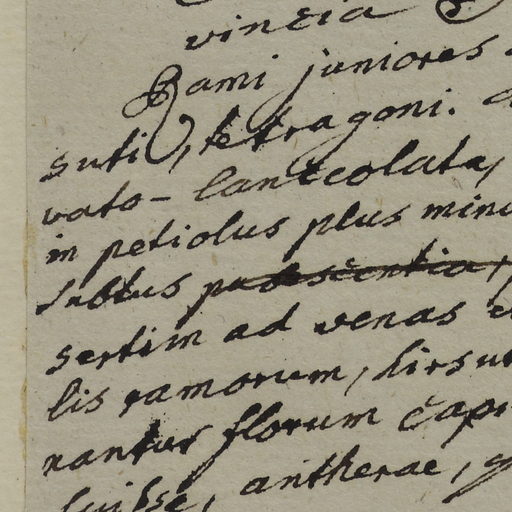 vincia
Rami juniores
suti, tetragoni.
vato-lanceolata,
in petiolus plus minu
subtus pubescentia,
sertim ad venas e
lis ramorum, hirsut
nantur florum capi
fuisse, antherae,